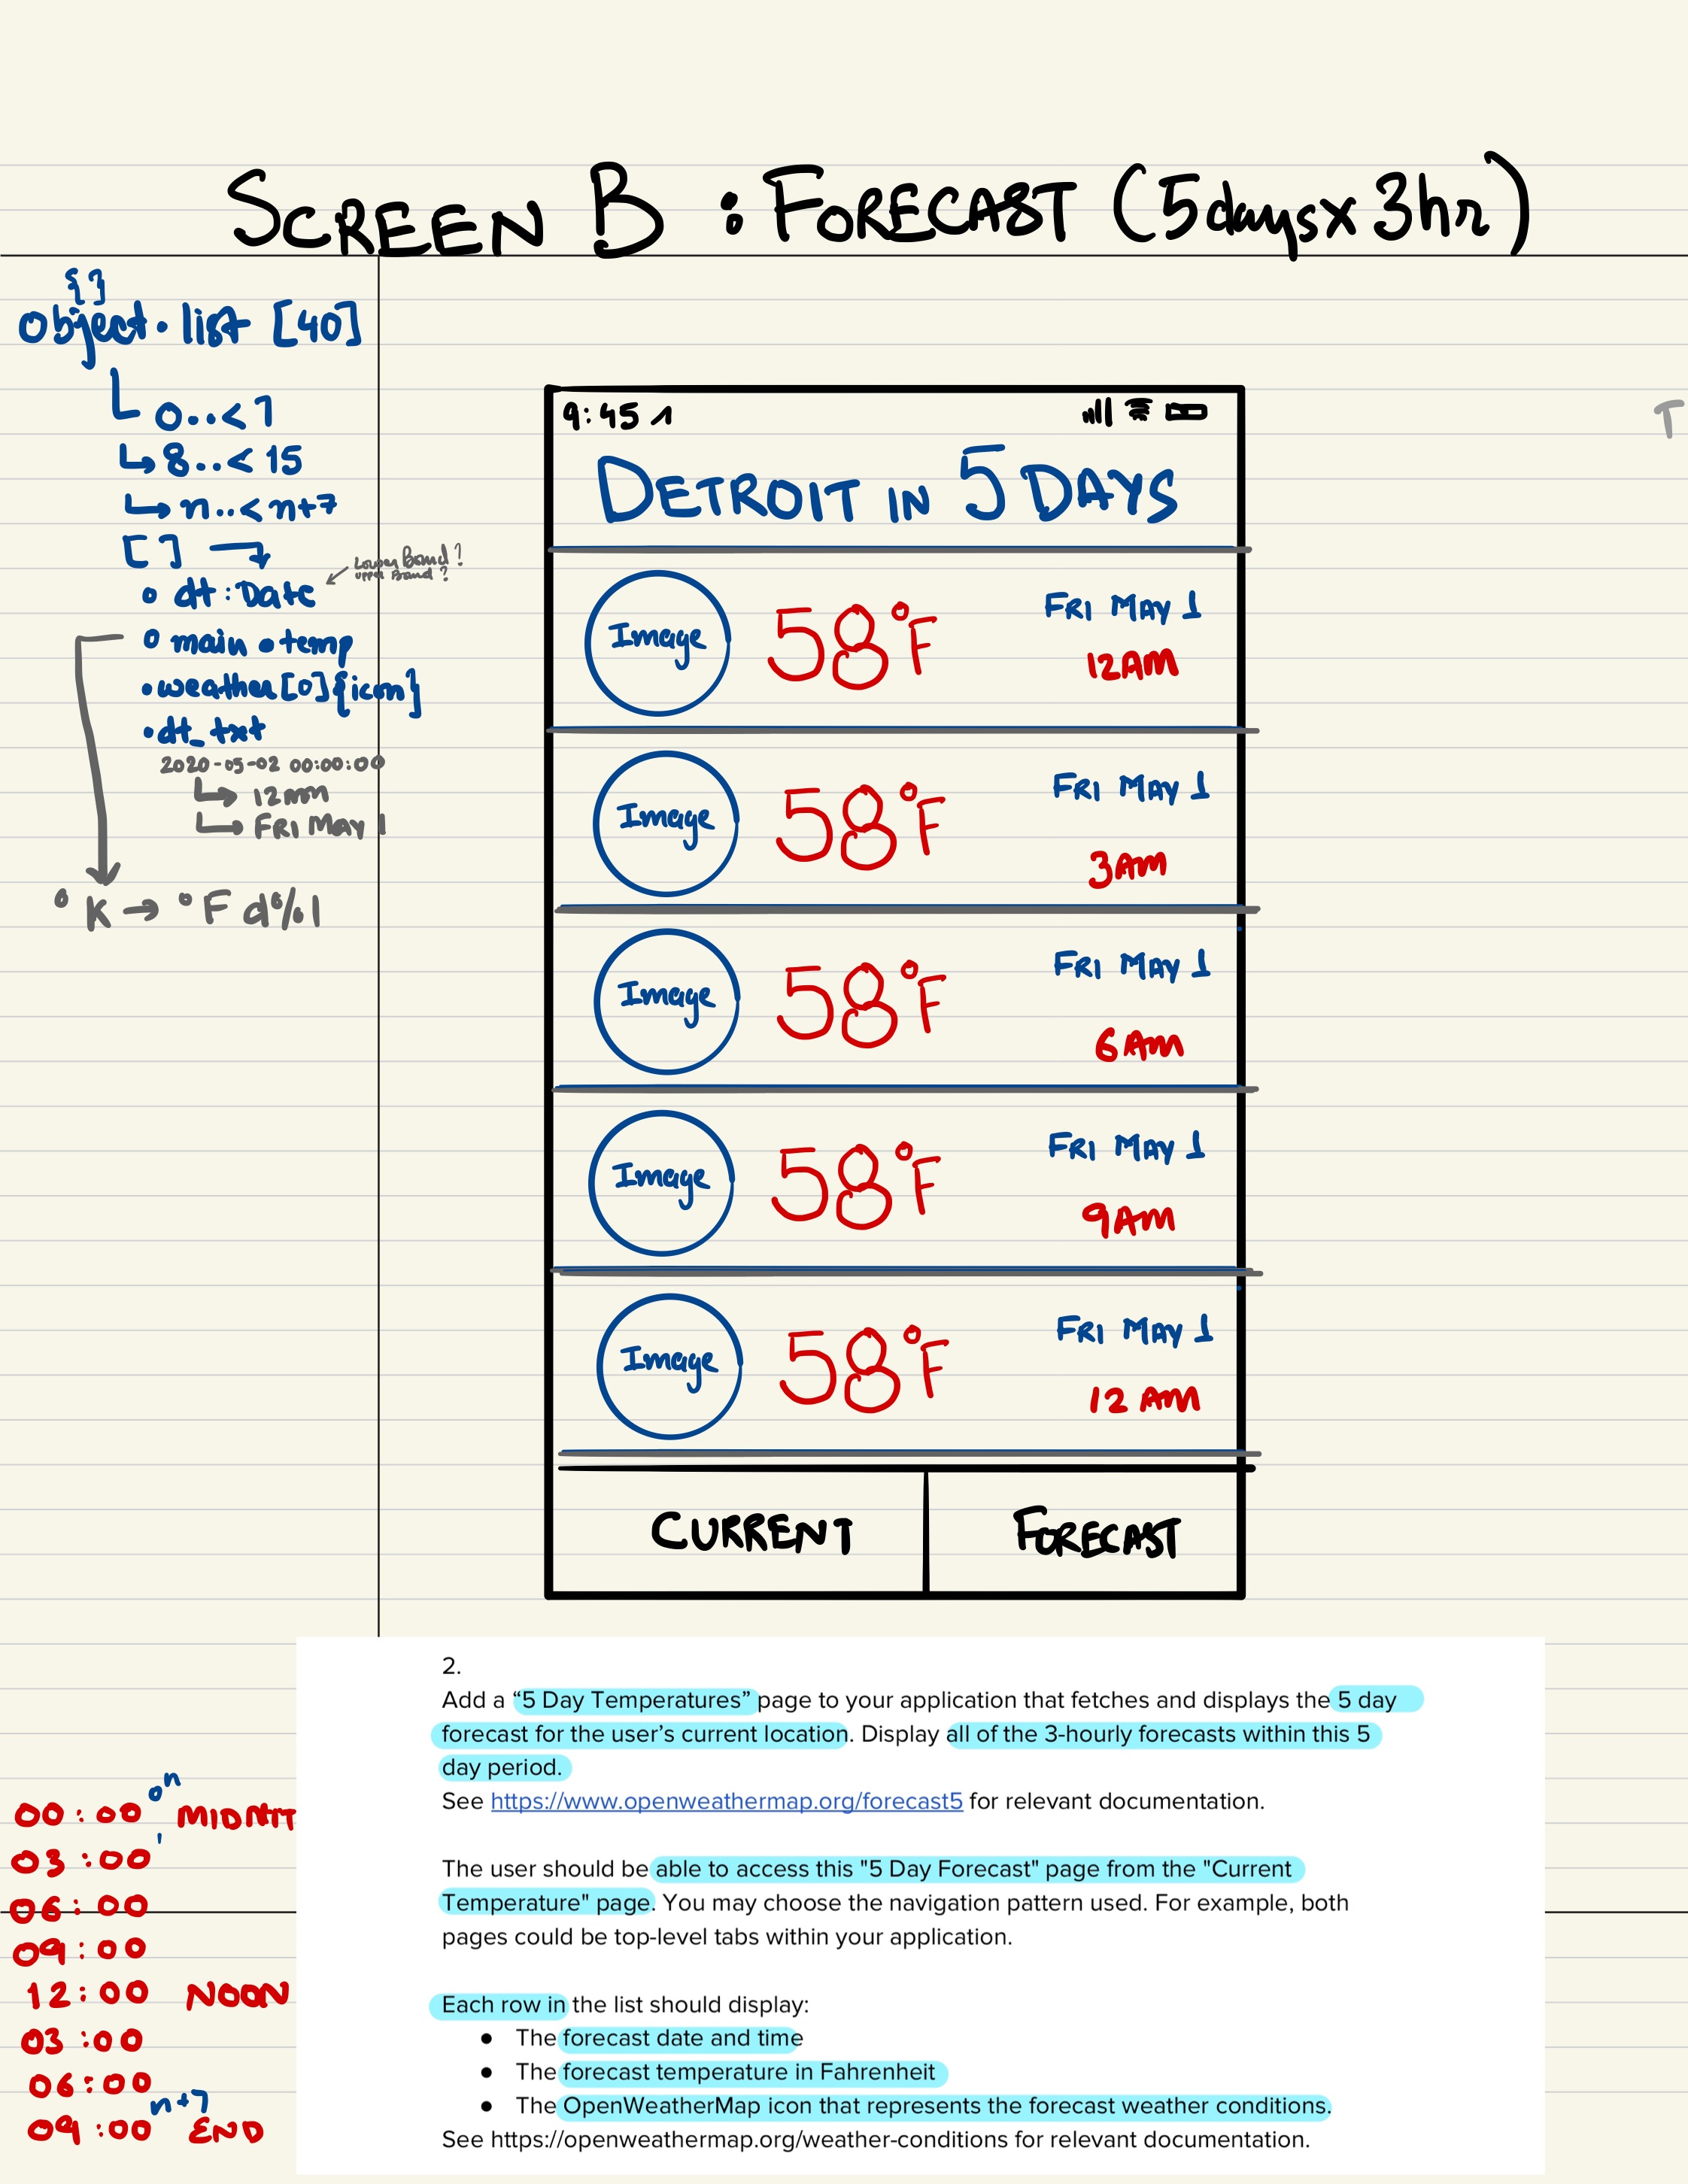 SCREEN B : FORECAST (5days x 3hr)
{ }
object. list [40]
0..<7
8..<15
n..<n+7
[ ]
Lower Bound?
upper Bound?
dt : Date
main.temp
weather[0]{icon}
dt_txt
2020-05-02 00:00:00
12AM
FRI MAY 1
°K → °F
9:45
DETROIT IN 5 DAYS
Image 58°F FRI MAY 1
12AM
Image 58°F FRI MAY 1
3AM
Image 58°F FRI MAY 1
6AM
Image 58°F FRI MAY 1
9AM
Image 58°F FRI MAY 1
12 AM
CURRENT FORECAST
T
2.
Add a “5 Day Temperatures” page to your application that fetches and displays the 5 day
forecast for the user’s current location. Display all of the 3-hourly forecasts within this 5
day period.
See https://www.openweathermap.org/forecast5 for relevant documentation.
The user should be able to access this "5 Day Forecast" page from the "Current
Temperature" page. You may choose the navigation pattern used. For example, both
pages could be top-level tabs within your application.
Each row in the list should display:
● The forecast date and time
● The forecast temperature in Fahrenheit
● The OpenWeatherMap icon that represents the forecast weather conditions.
See https://openweathermap.org/weather-conditions for relevant documentation.
00:00 0 n
03:00 1
06:00
09:00
12:00 NOON
03:00
06:00
09:00 n+7 END